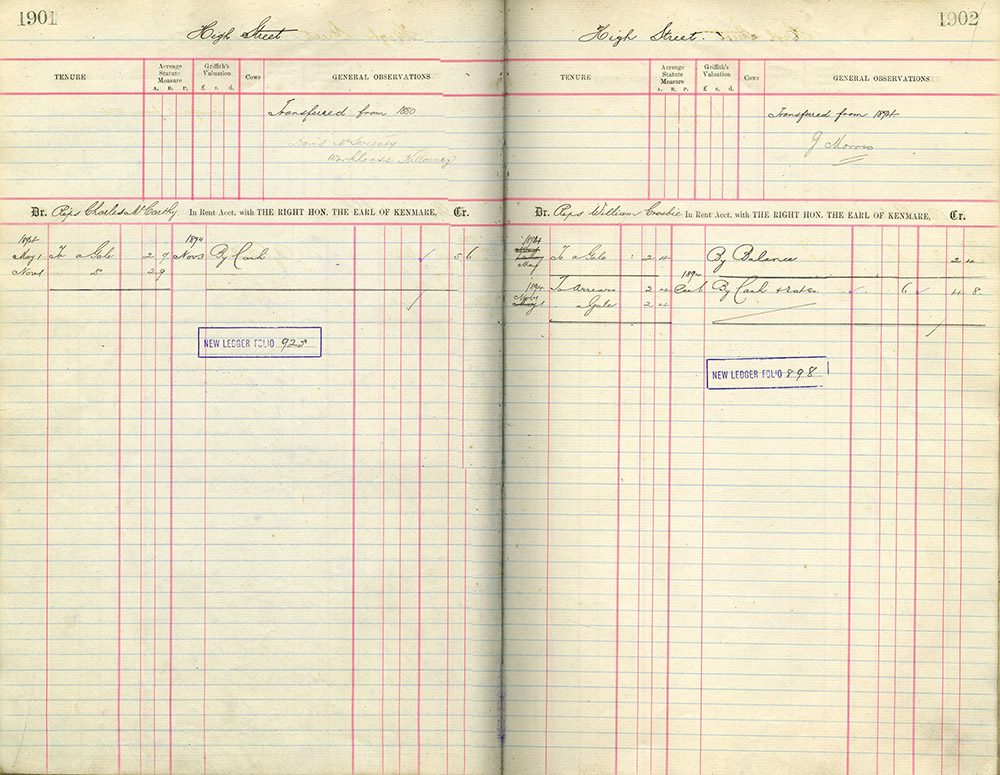 1901
High Street
TENURE
Acreage Statute Measure
A. R. P.
Griffith's Valuation
£ s. d.
Cows
GENERAL OBSERVATIONS
Transferred from 1880
David McSweeney
Workhouse Killarney
Dr. Reps Charles McCarthy In Rent Acct. with THE RIGHT HON. THE EARL OF KENMARE, Cr.
1894 1894
May 1 To a Gale 2 9 Novr By Cash ✓ 5 6
Novr Do 2 9
NEW LEDGER FOLIO 925
1902
High Street
TENURE
Acreage Statute Measure
A. R. P.
Griffith's Valuation
£ s. d.
Cows
GENERAL OBSERVATIONS
Transferred from 1894
G Morris
Dr. Reps William Crosbie In Rent Acct. with THE RIGHT HON. THE EARL OF KENMARE, Cr.
1894
May To a Gale 2 4 By Balance 2 4
1894 To Arrears 2 4 1894 By Cash & rates ✓ 6 ✓ 4 8
a Gale 2 4
NEW LEDGER FOLIO 898